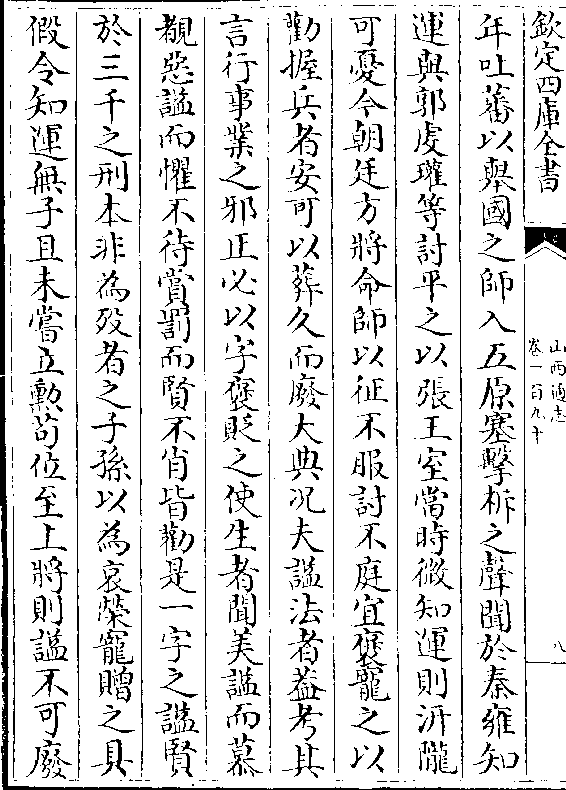 欽定四庫全書
山西通志
卷一百九十
八
年吐蕃以舉國之師入五原塞擊柝之聲聞於秦雍知
運與郭虔瓘等討平之以張王室當時微知運則汧隴
可憂今朝廷方將命師以征不服討不庭宜褒寵之以
勸握兵者安可以葬久而廢大典況夫諡法者葢考其
言行事業之邪正必以字褒貶之使生者聞美諡而慕
覩惡諡而懼不待賞罰而賢不肖皆勸是一字之諡賢
於三千之刑本非為歿者之子孫以為哀榮寵贈之具
假令知運無子且未嘗立勲苟位至上將則諡不可廢